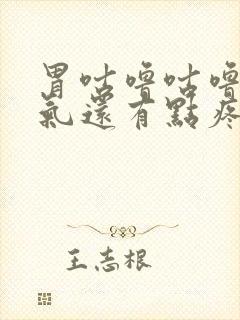 胃咕噜咕噜
氣還有點疼
王志根